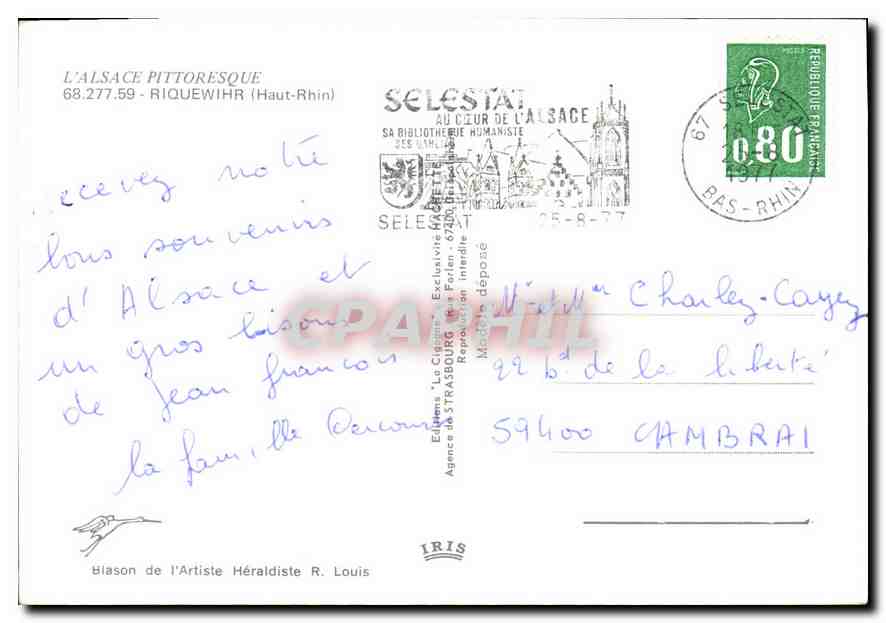 L'ALSACE PITTORESQUE
68.277.59 - RIQUEWIHR (Haut-Rhin)
SELESTAT
AU CŒUR DE L'ALSACE
SA BIBLIOTHEQUE HUMANISTE
SES
SELESTAT 25-8-77
67 SELESTAT
18
25-8
1977
BAS-RHIN
POSTES
REPUBLIQUE FRANÇAISE
0,80
ecevez notre
bons souvenirs
d'Alsace et
un gros bisous
de Jean francois
la famille
Editions "La Cigogne" - Exclusivité HACHETTE
Agence de STRASBOURG - Rue Forlen - 67400
Reproduction interdite
Modèle déposé
CPAPHIL
M et Mme Charley-Cayez
22 bd de la liberté
59400 CAMBRAI
IRIS
Blason de l'Artiste Héraldiste R. Louis